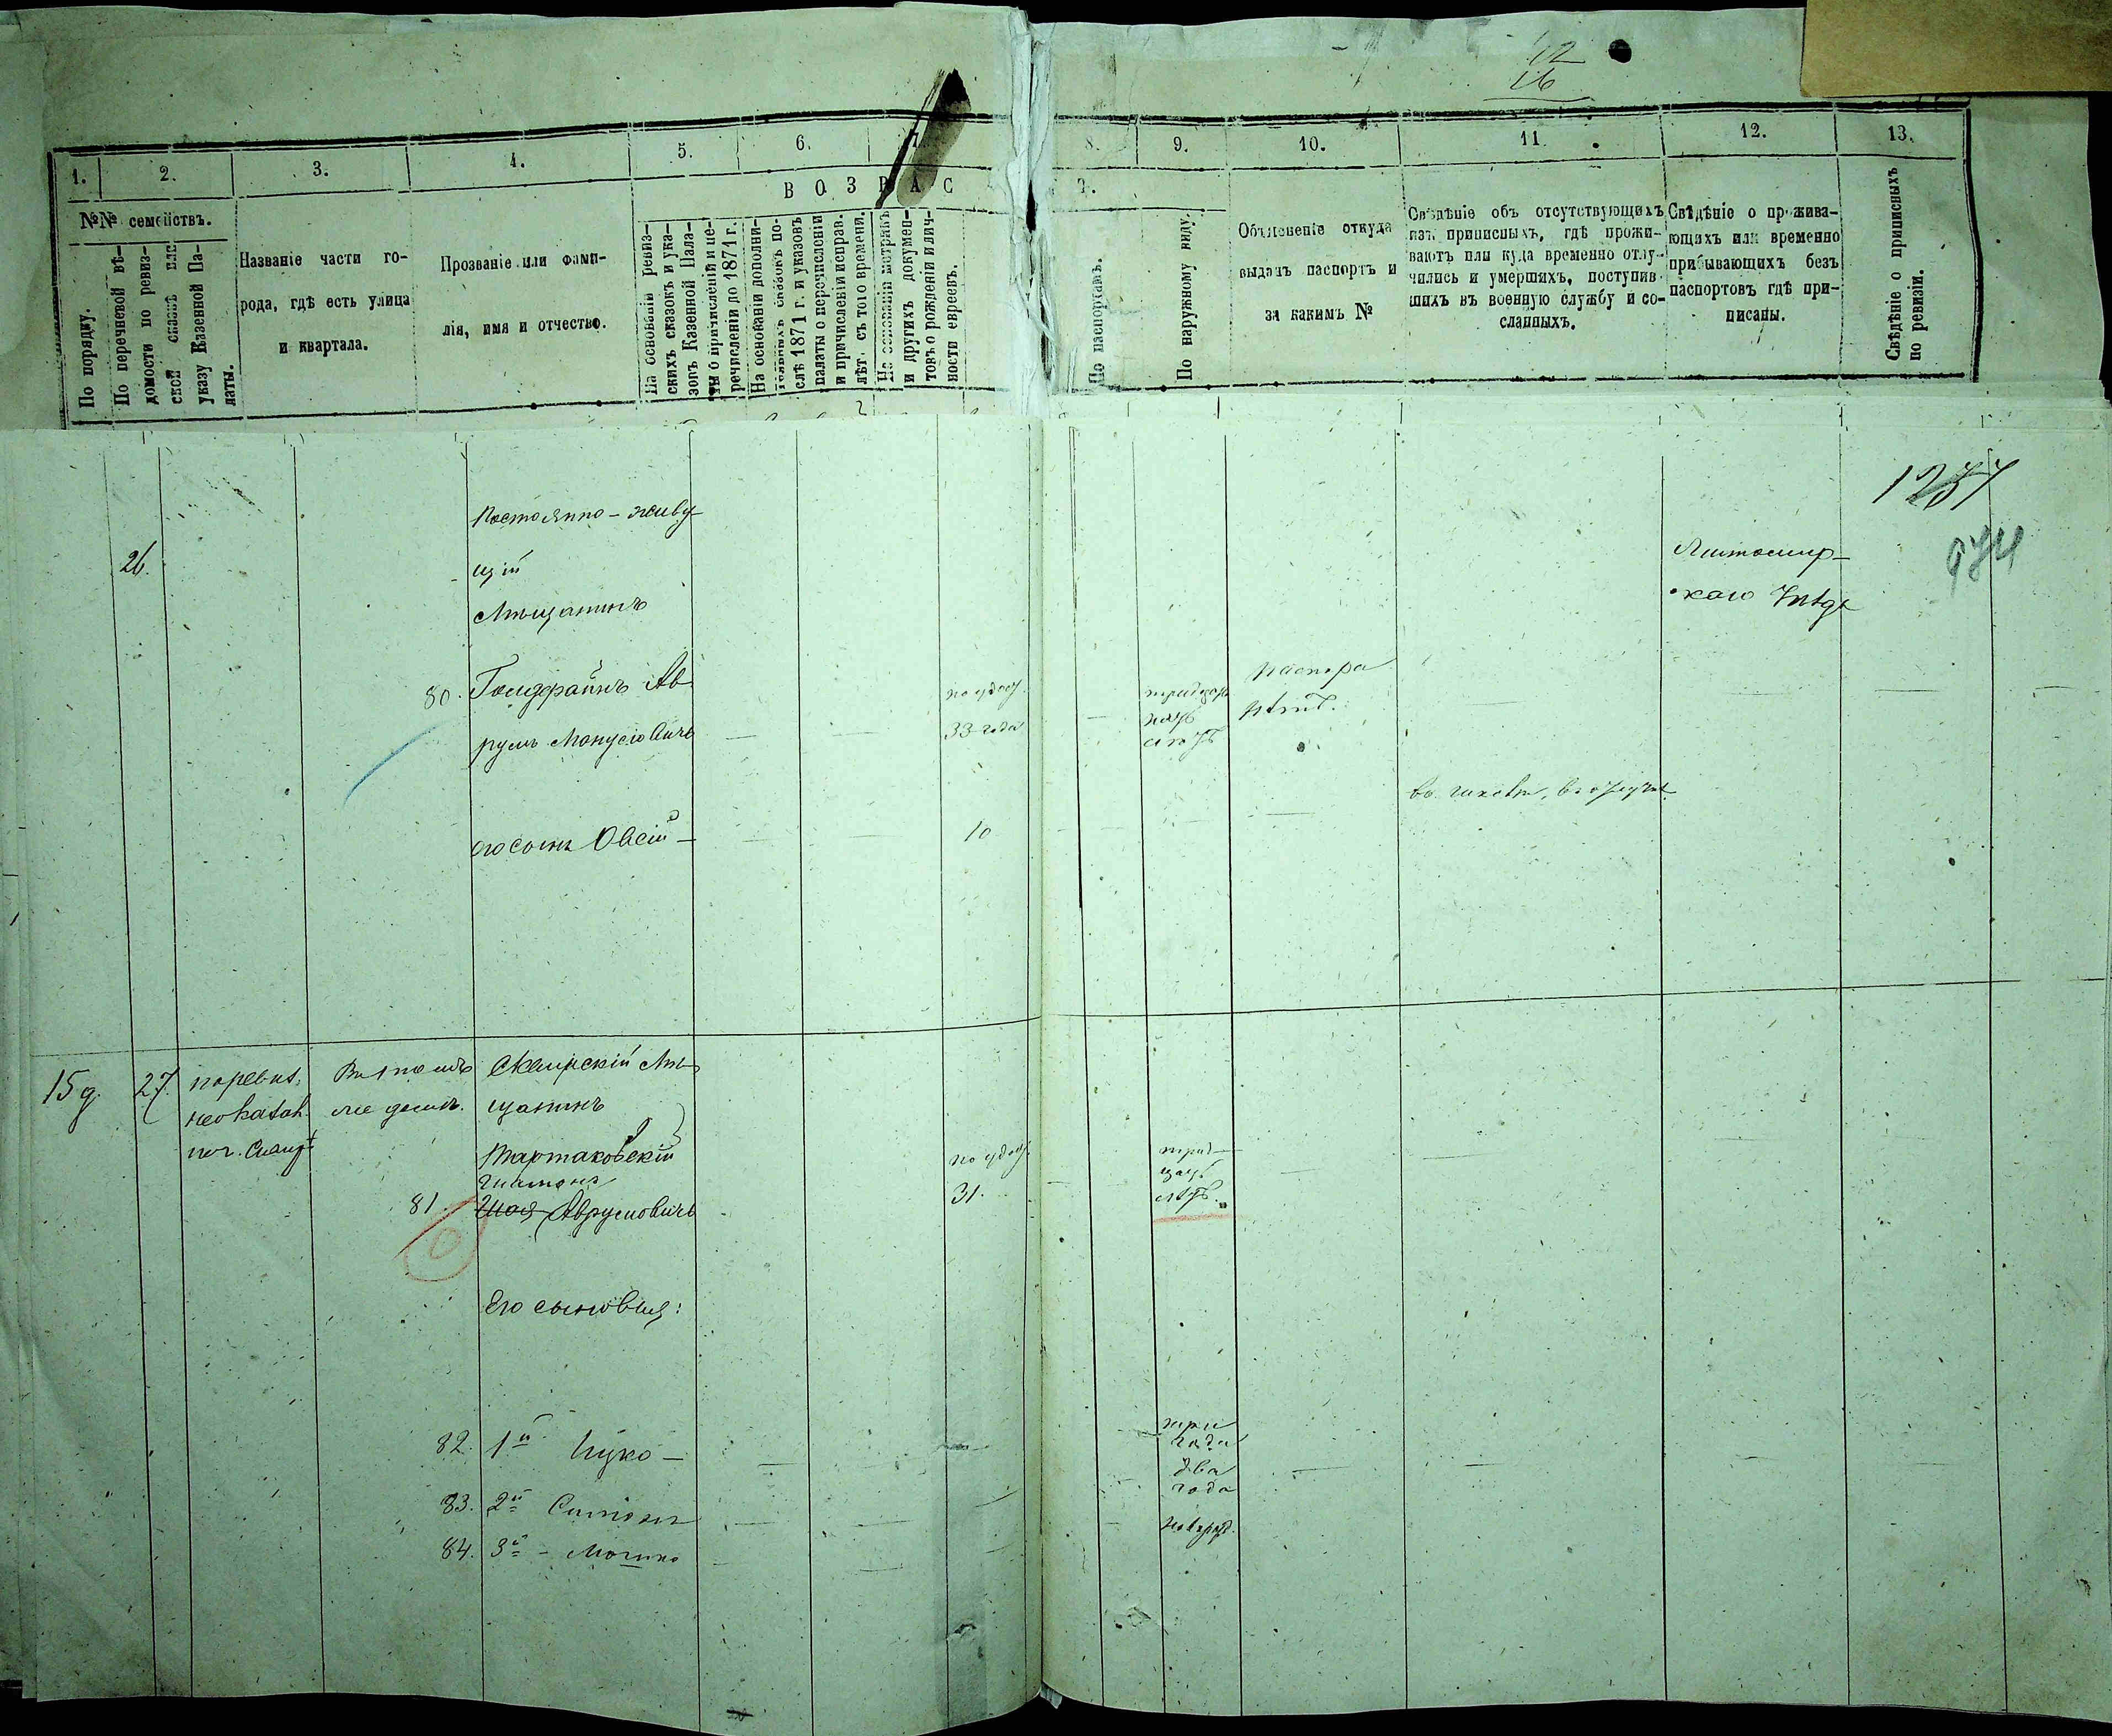 12
16
1.
2.
3.
4.
5.
6.
7.
8.
9.
10.
11.
12.
13.
ВОЗРАС
Т.
№№ семействъ.
По порядку.
По перечневой вѣ-
домости по ревиз-
ской сказкѣ или
указу Казенной Па-
латы.
Названіе части го-
рода, гдѣ есть улица
и квартала.
Прозваніе или фами-
лія, имя и отчество.
На основаніи ревиз-
скихъ сказокъ и ука-
зовъ Казенной Пала-
ты о причисленіи и пе-
речисленіи до 1871 г.
На основаніи дополни-
тельныхъ сказокъ по-
слѣ 1871 г. и указовъ
палаты о перечисленіи
и причисленіи исправ.
лѣт. съ того времени.
На основаніи метрикъ
и другихъ докумен-
товъ о рожденіи и лич-
ности евреевъ.
По паспортамъ.
По наружному виду.
Объясненіе откуда
выданъ паспортъ и
за какимъ №
Свѣдѣніе объ отсутствующихъ
изъ приписныхъ, гдѣ прожи-
ваютъ или куда временно отлу-
чились и умершихъ, поступив-
шихъ въ военную службу и со-
сланныхъ.
Свѣдѣніе о прожива-
ющихъ или временно
прибывающихъ безъ
паспортовъ гдѣ при-
писаны.
Свѣдѣніе о приписныхъ
по ревизіи.
974
26.
Постоянно-живу-
щій
Мѣщанинъ
80. Ав-
румъ Манусовичъ
33 года
тридцать
лѣтъ
паспорта
нѣтъ.
Житомир-
скаго
его сынъ Овсій
10
15 д.
27.
по ревиз.
не оказал.
Въ томъ
же домѣ.
Сквирскій Мѣ-
щанинъ
Тартаковскій
81. Шая Аврумовичъ
31.
трид-
цать
лѣтъ.
Его сыновья:
82. 1й Ицко
три
года
83. 2й
два
года
84. 3й Мошко
новорожд.